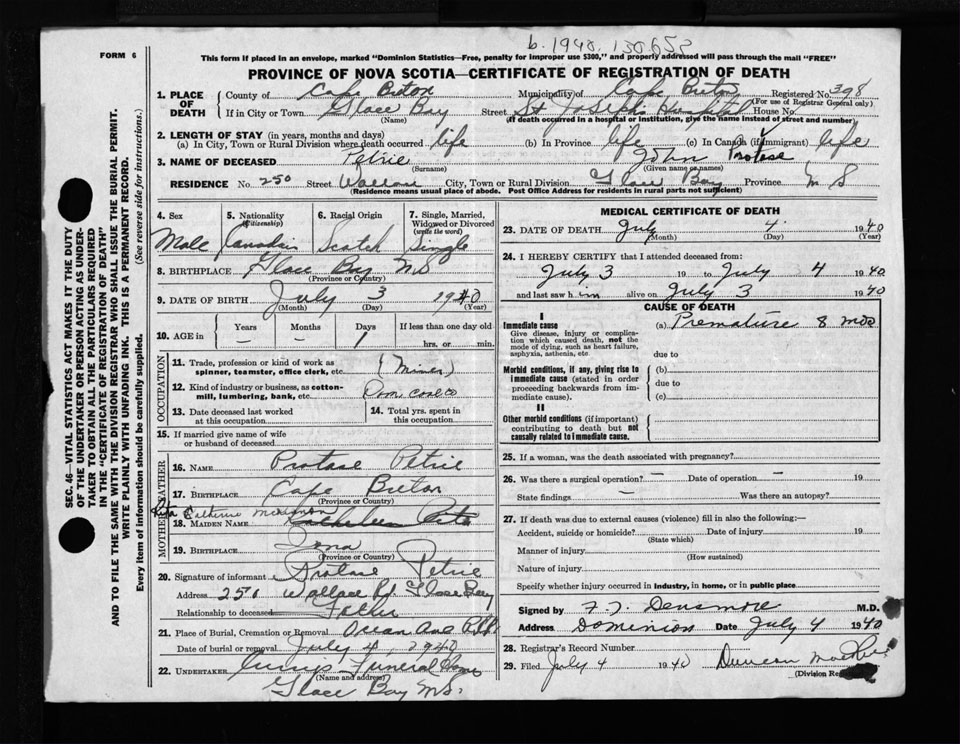 b. 1940. 130652
FORM 6
This form if placed in an envelope, marked "Dominion Statistics—Free, penalty for improper use $300," and properly addressed will pass through the mail "FREE"
PROVINCE OF NOVA SCOTIA—CERTIFICATE OF REGISTRATION OF DEATH
1. PLACE OF DEATH County of Cape Breton Municipality of Cape Breton Registered No. 398
(For use of Registrar General only)
If in City or Town Glace Bay Street St Joseph's Hospital House No.
(Name) (If death occurred in a hospital or institution, give the name instead of street and number)
2. LENGTH OF STAY (in years, months and days)
(a) In City, Town or Rural Division where death occurred life (b) In Province life (c) In Canada (if immigrant) life
3. NAME OF DECEASED Petrie John Protase
(Surname) (Given name or names)
RESIDENCE No. 250 Street Wallace City, Town or Rural Division Glace Bay Province N S
(Residence means usual place of abode. Post Office Address for residents in rural parts not sufficient)
4. Sex Male
5. Nationality (Citizenship) Canadian
6. Racial Origin Scotch
7. Single, Married, Widowed or Divorced (write the word) Single
8. BIRTHPLACE Glace Bay NS
(Province or Country)
9. DATE OF BIRTH July 3 1940
(Month) (Day) (Year)
10. AGE in Years Months Days If less than one day old
– – 1 hrs. or min.
OCCUPATION
11. Trade, profession or kind of work as spinner, teamster, office clerk, etc. (Miner)
12. Kind of industry or business, as cotton-mill, lumbering, bank, etc. Dom coal co
13. Date deceased last worked at this occupation
14. Total yrs. spent in this occupation
15. If married give name of wife or husband of deceased
FATHER
16. NAME Protase Petrie
17. BIRTHPLACE Cape Breton
(Province or Country)
MOTHER
Catherine
18. MAIDEN NAME
19. BIRTHPLACE Iona
(Province or Country)
20. Signature of informant Protase Petrie
Address 250 Wallace Rd. Glace Bay
Relationship to deceased Father
21. Place of Burial, Cremation or Removal Ocean Ave
Date of burial or removal July 4, 1940
22. UNDERTAKER Funeral Home
(Name and address)
Glace Bay NS.
MEDICAL CERTIFICATE OF DEATH
23. DATE OF DEATH July 4 1940
(Month) (Day) (Year)
24. I HEREBY CERTIFY that I attended deceased from:
July 3 19 to July 4 1940
and last saw him alive on July 3 1940
CAUSE OF DEATH
I
Immediate cause (a) Premature 8 mos
Give disease, injury or complication which caused death, not the mode of dying, such as heart failure, asphyxia, asthenia, etc
due to
Morbid conditions, if any, giving rise to immediate cause (stated in order proceeding backwards from immediate cause).
(b)
due to
(c)
II
Other morbid conditions (if important) contributing to death but not causally related to immediate cause.
25. If a woman, was the death associated with pregnancy?
26. Was there a surgical operation? – Date of operation – 19
State findings – Was there an autopsy?
27. If death was due to external causes (violence) fill in also the following:—
Accident, suicide or homicide? Date of injury 19
(State which)
Manner of injury
(How sustained)
Nature of injury
Specify whether injury occurred in industry, in home, or in public place
Signed by F. J. Densmore M.D.
Address Dominion Date July 4 1940
28. Registrar's Record Number
29. Filed July 4 1940 Duncan
(Division Registrar)
SEC. 46—VITAL STATISTICS ACT MAKES IT THE DUTY
OF THE UNDERTAKER OR PERSON ACTING AS UNDER-
TAKER TO OBTAIN ALL THE PARTICULARS REQUIRED
IN THE "CERTIFICATE OF REGISTRATION OF DEATH"
AND TO FILE THE SAME WITH THE DIVISION REGISTRAR WHO SHALL ISSUE THE BURIAL PERMIT.
WRITE PLAINLY WITH UNFADING INK. THIS IS A PERMANENT RECORD.
Every item of information should be carefully supplied. (See reverse side for instructions.)